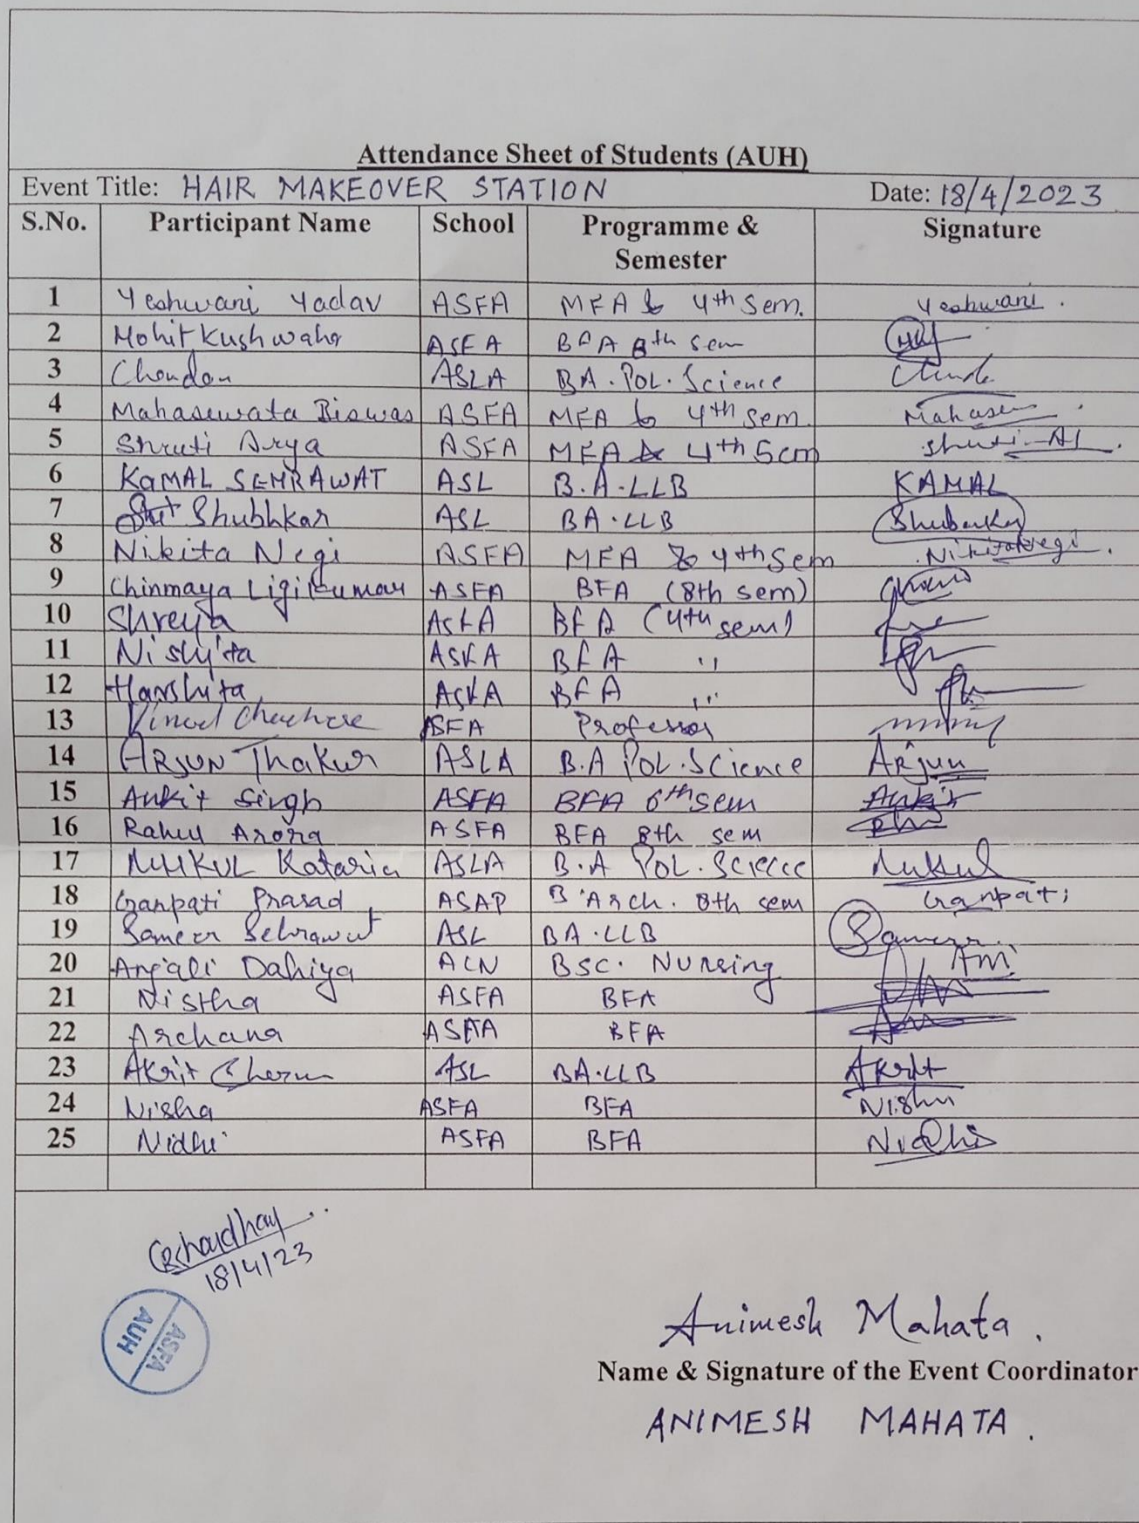 Attendance Sheet of Students (AUH)
Event Title: HAIR MAKEOVER STATION Date: 18/4/2023
S.No. Participant Name School Programme & Semester Signature
1 Yeshwani Yadav ASFA MFA 4th Sem. Yeshwani.
2 Mohit Kushwaha ASFA BFA 8th sem
3 Chandan ASLA BA. Pol. Science
4 Mahaswata Biswas ASFA MFA 4th sem. Mahaswe
5 Shruti Arya ASFA MFA 4th Sem
6 KAMAL SEHRAWAT ASL B.A.LLB KAMAL
7 Shubhkar ASL BA.LLB Shubhkar
8 Nikita Negi ASFA MFA 4th Sem Nikita Negi.
9 Chinmaya Ligikumar ASFA BFA (8th sem)
10 Shreya ASFA BFA (4th sem)
11 Nishita ASFA BFA ,,
12 Harshita ASFA BFA ,,
13 Vinod ASFA Professor
14 ARJUN Thakur ASLA B.A Pol. Science Arjun
15 Ankit Singh ASFA BFA 6th sem Ankit
16 Rahul Arora ASFA BFA 8th sem
17 MUKUL Kataria ASLA B.A Pol. Sciecce Mukul
18 Ganpati Prasad ASAP B.Arch. 8th sem Ganpati
19 Sameer Sehrawat ASL BA.LLB Sameer
20 Anjali Dahiya ACN BSC. Nursing
21 Nistha ASFA BFA
22 Archana ASFA BFA
23 Akrit ASL BA.LLB Akrit
24 Nisha ASFA BFA Nisha
25 Nidhi ASFA BFA Nidhi
18/4/23
ASFA
AUH
Animesh Mahata.
Name & Signature of the Event Coordinator
ANIMESH MAHATA.